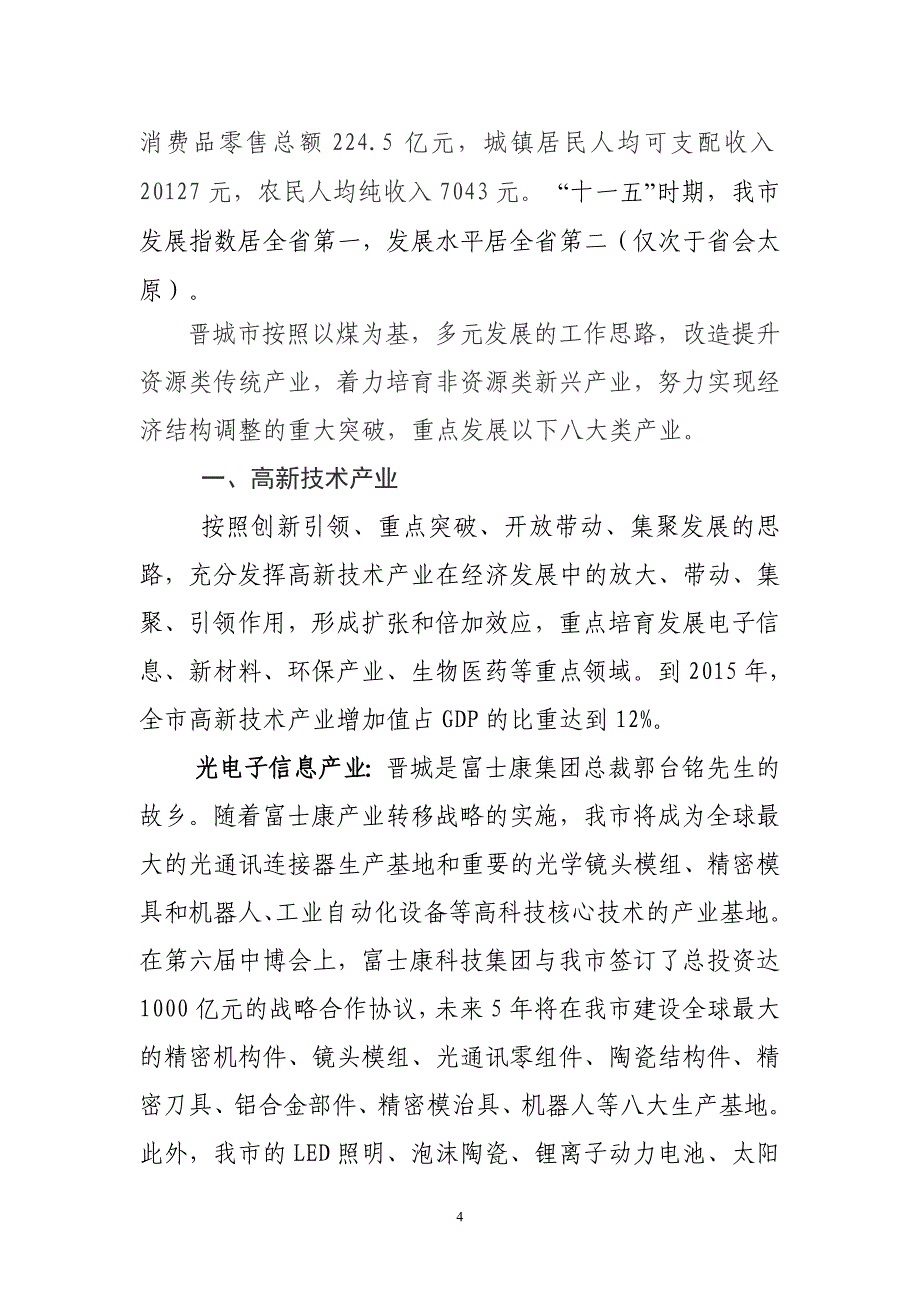 消费品零售总额 224.5 亿元，城镇居民人均可支配收入
20127 元，农民人均纯收入 7043 元。 “十一五”时期，我市
发展指数居全省第一，发展水平居全省第二（仅次于省会太
原）。
晋城市按照以煤为基，多元发展的工作思路，改造提升
资源类传统产业，着力培育非资源类新兴产业，努力实现经
济结构调整的重大突破，重点发展以下八大类产业。
一、高新技术产业
按照创新引领、重点突破、开放带动、集聚发展的思
路，充分发挥高新技术产业在经济发展中的放大、带动、集
聚、引领作用，形成扩张和倍加效应，重点培育发展电子信
息、新材料、环保产业、生物医药等重点领域。到 2015 年，
全市高新技术产业增加值占 GDP 的比重达到 12%。
光电子信息产业：晋城是富士康集团总裁郭台铭先生的
故乡。随着富士康产业转移战略的实施，我市将成为全球最
大的光通讯连接器生产基地和重要的光学镜头模组、精密模
具和机器人、工业自动化设备等高科技核心技术的产业基地。
在第六届中博会上，富士康科技集团与我市签订了总投资达
1000 亿元的战略合作协议，未来 5 年将在我市建设全球最大
的精密机构件、镜头模组、光通讯零组件、陶瓷结构件、精
密刀具、铝合金部件、精密模治具、机器人等八大生产基地。
此外，我市的 LED 照明、泡沫陶瓷、锂离子动力电池、太阳
4